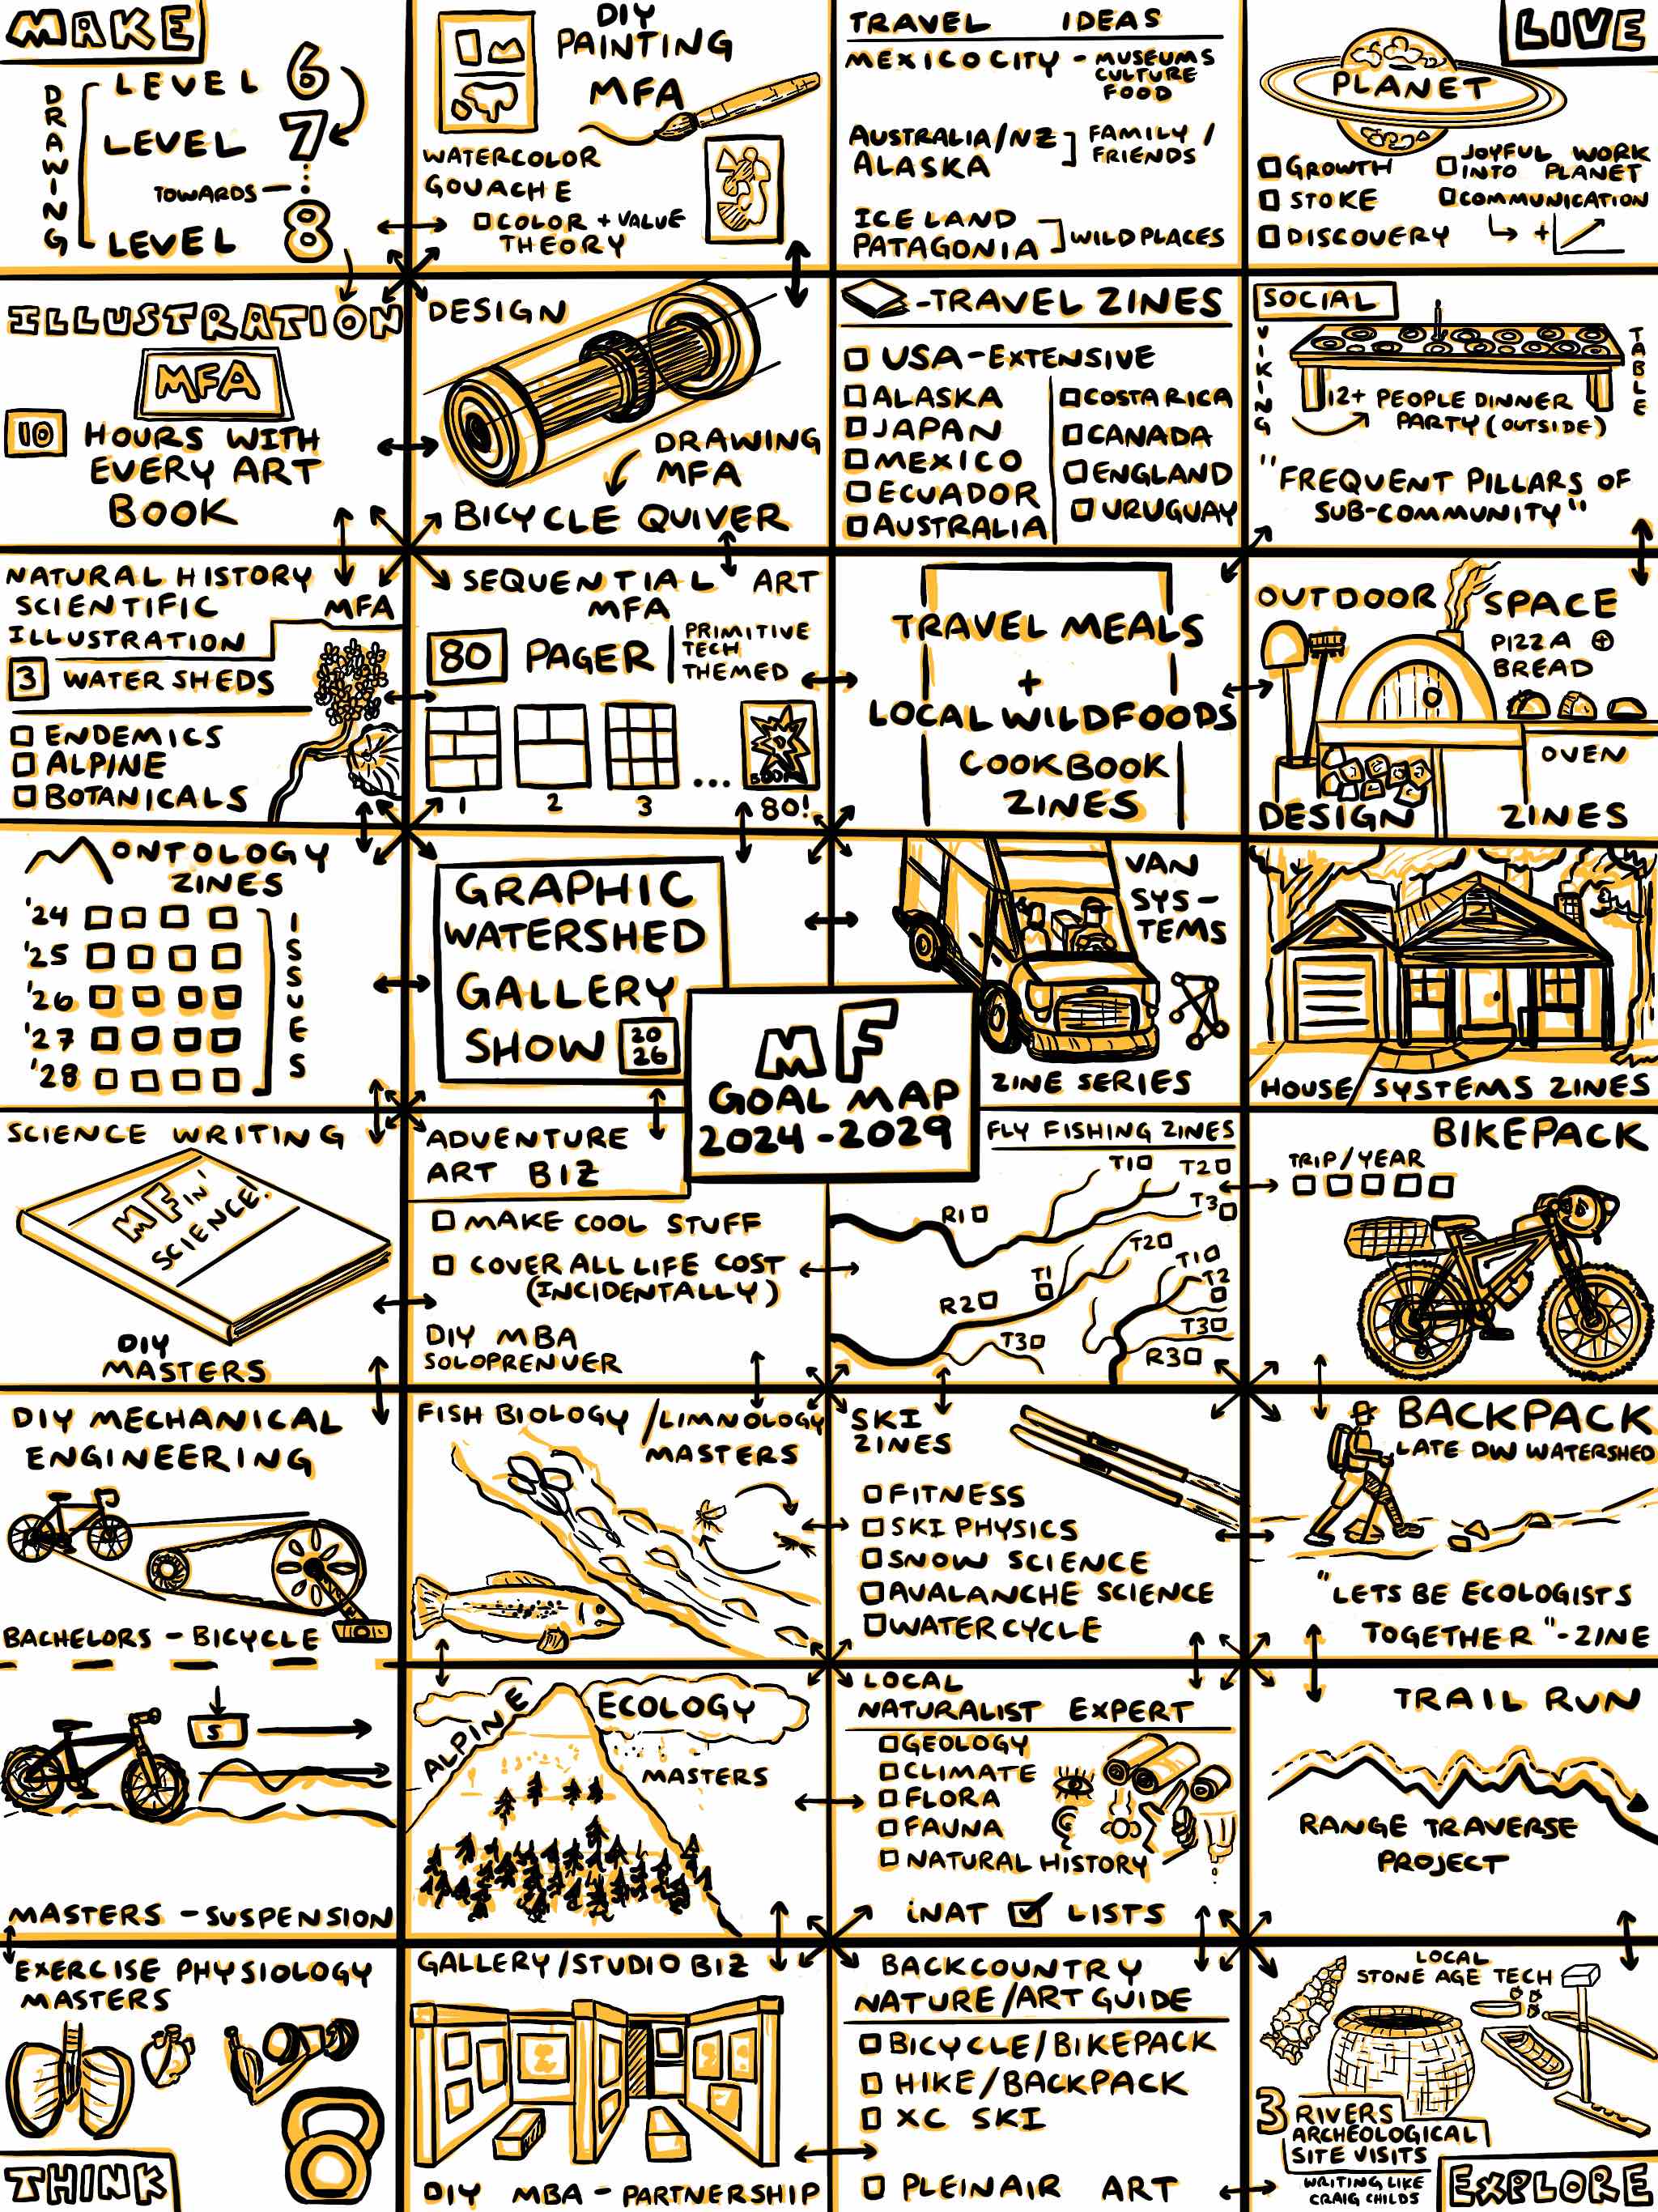 MAKE
DRAWING
LEVEL 6
LEVEL 7
TOWARDS
LEVEL 8
DIY
PAINTING
MFA
WATERCOLOR
GOUACHE
COLOR + VALUE
THEORY
TRAVEL IDEAS
MEXICO CITY - MUSEUMS
CULTURE
FOOD
AUSTRALIA/NZ
ALASKA
FAMILY/
FRIENDS
ICELAND
PATAGONIA
WILD PLACES
LIVE
PLANET
GROWTH
STOKE
DISCOVERY
JOYFUL WORK
INTO PLANET
COMMUNICATION
+
ILLUSTRATION
MFA
10 HOURS WITH
EVERY ART
BOOK
DESIGN
DRAWING
MFA
BICYCLE QUIVER
-TRAVEL ZINES
USA-EXTENSIVE
ALASKA
JAPAN
MEXICO
ECUADOR
AUSTRALIA
COSTA RICA
CANADA
ENGLAND
URUGUAY
SOCIAL
VIKING
TABLE
12+ PEOPLE DINNER
PARTY (OUTSIDE)
"FREQUENT PILLARS OF
SUB-COMMUNITY"
NATURAL HISTORY
SCIENTIFIC MFA
ILLUSTRATION
3 WATER SHEDS
ENDEMICS
ALPINE
BOTANICALS
SEQUENTIAL ART
MFA
80 PAGER
PRIMITIVE
TECH
THEMED
BOOM
1 2 3 ... 80!
TRAVEL MEALS
+
LOCAL WILDFOODS
COOKBOOK
ZINES
OUTDOOR SPACE
PIZZA +
BREAD
OVEN
DESIGN ZINES
ONTOLOGY
ZINES
'24
'25
'26
'27
'28
ISSUES
GRAPHIC
WATERSHED
GALLERY
SHOW 2026
VAN
SYS-
TEMS
ZINE SERIES
HOUSE/SYSTEMS ZINES
MF
GOAL MAP
2024-2029
SCIENCE WRITING
MFIN'
SCIENCE!
DIY
MASTERS
ADVENTURE
ART BIZ
MAKE COOL STUFF
COVER ALL LIFE COST
(INCIDENTALLY)
DIY MBA
SOLOPRENUER
FLY FISHING ZINES
T1 T2
T3
R1
T2
T1
T1
T2
R2
T3
T3
R3
BIKEPACK
TRIP/YEAR
DIY MECHANICAL
ENGINEERING
BACHELORS - BICYCLE
FISH BIOLOGY/LIMNOLOGY
MASTERS
SKI
ZINES
FITNESS
SKI PHYSICS
SNOW SCIENCE
AVALANCHE SCIENCE
WATER CYCLE
BACKPACK
LATE DW WATERSHED
"LETS BE ECOLOGISTS
TOGETHER"-ZINE
S
MASTERS - SUSPENSION
ALPINE ECOLOGY
MASTERS
LOCAL
NATURALIST EXPERT
GEOLOGY
CLIMATE
FLORA
FAUNA
NATURAL HISTORY
iNAT LISTS
TRAIL RUN
RANGE TRAVERSE
PROJECT
EXERCISE PHYSIOLOGY
MASTERS
THINK
GALLERY/STUDIO BIZ
DIY MBA - PARTNERSHIP
BACKCOUNTRY
NATURE/ART GUIDE
BICYCLE/BIKEPACK
HIKE/BACKPACK
XC SKI
PLEINAIR ART
LOCAL
STONE AGE TECH
3 RIVERS
ARCHEOLOGICAL
SITE VISITS
WRITING LIKE
CRAIG CHILDS
EXPLORE